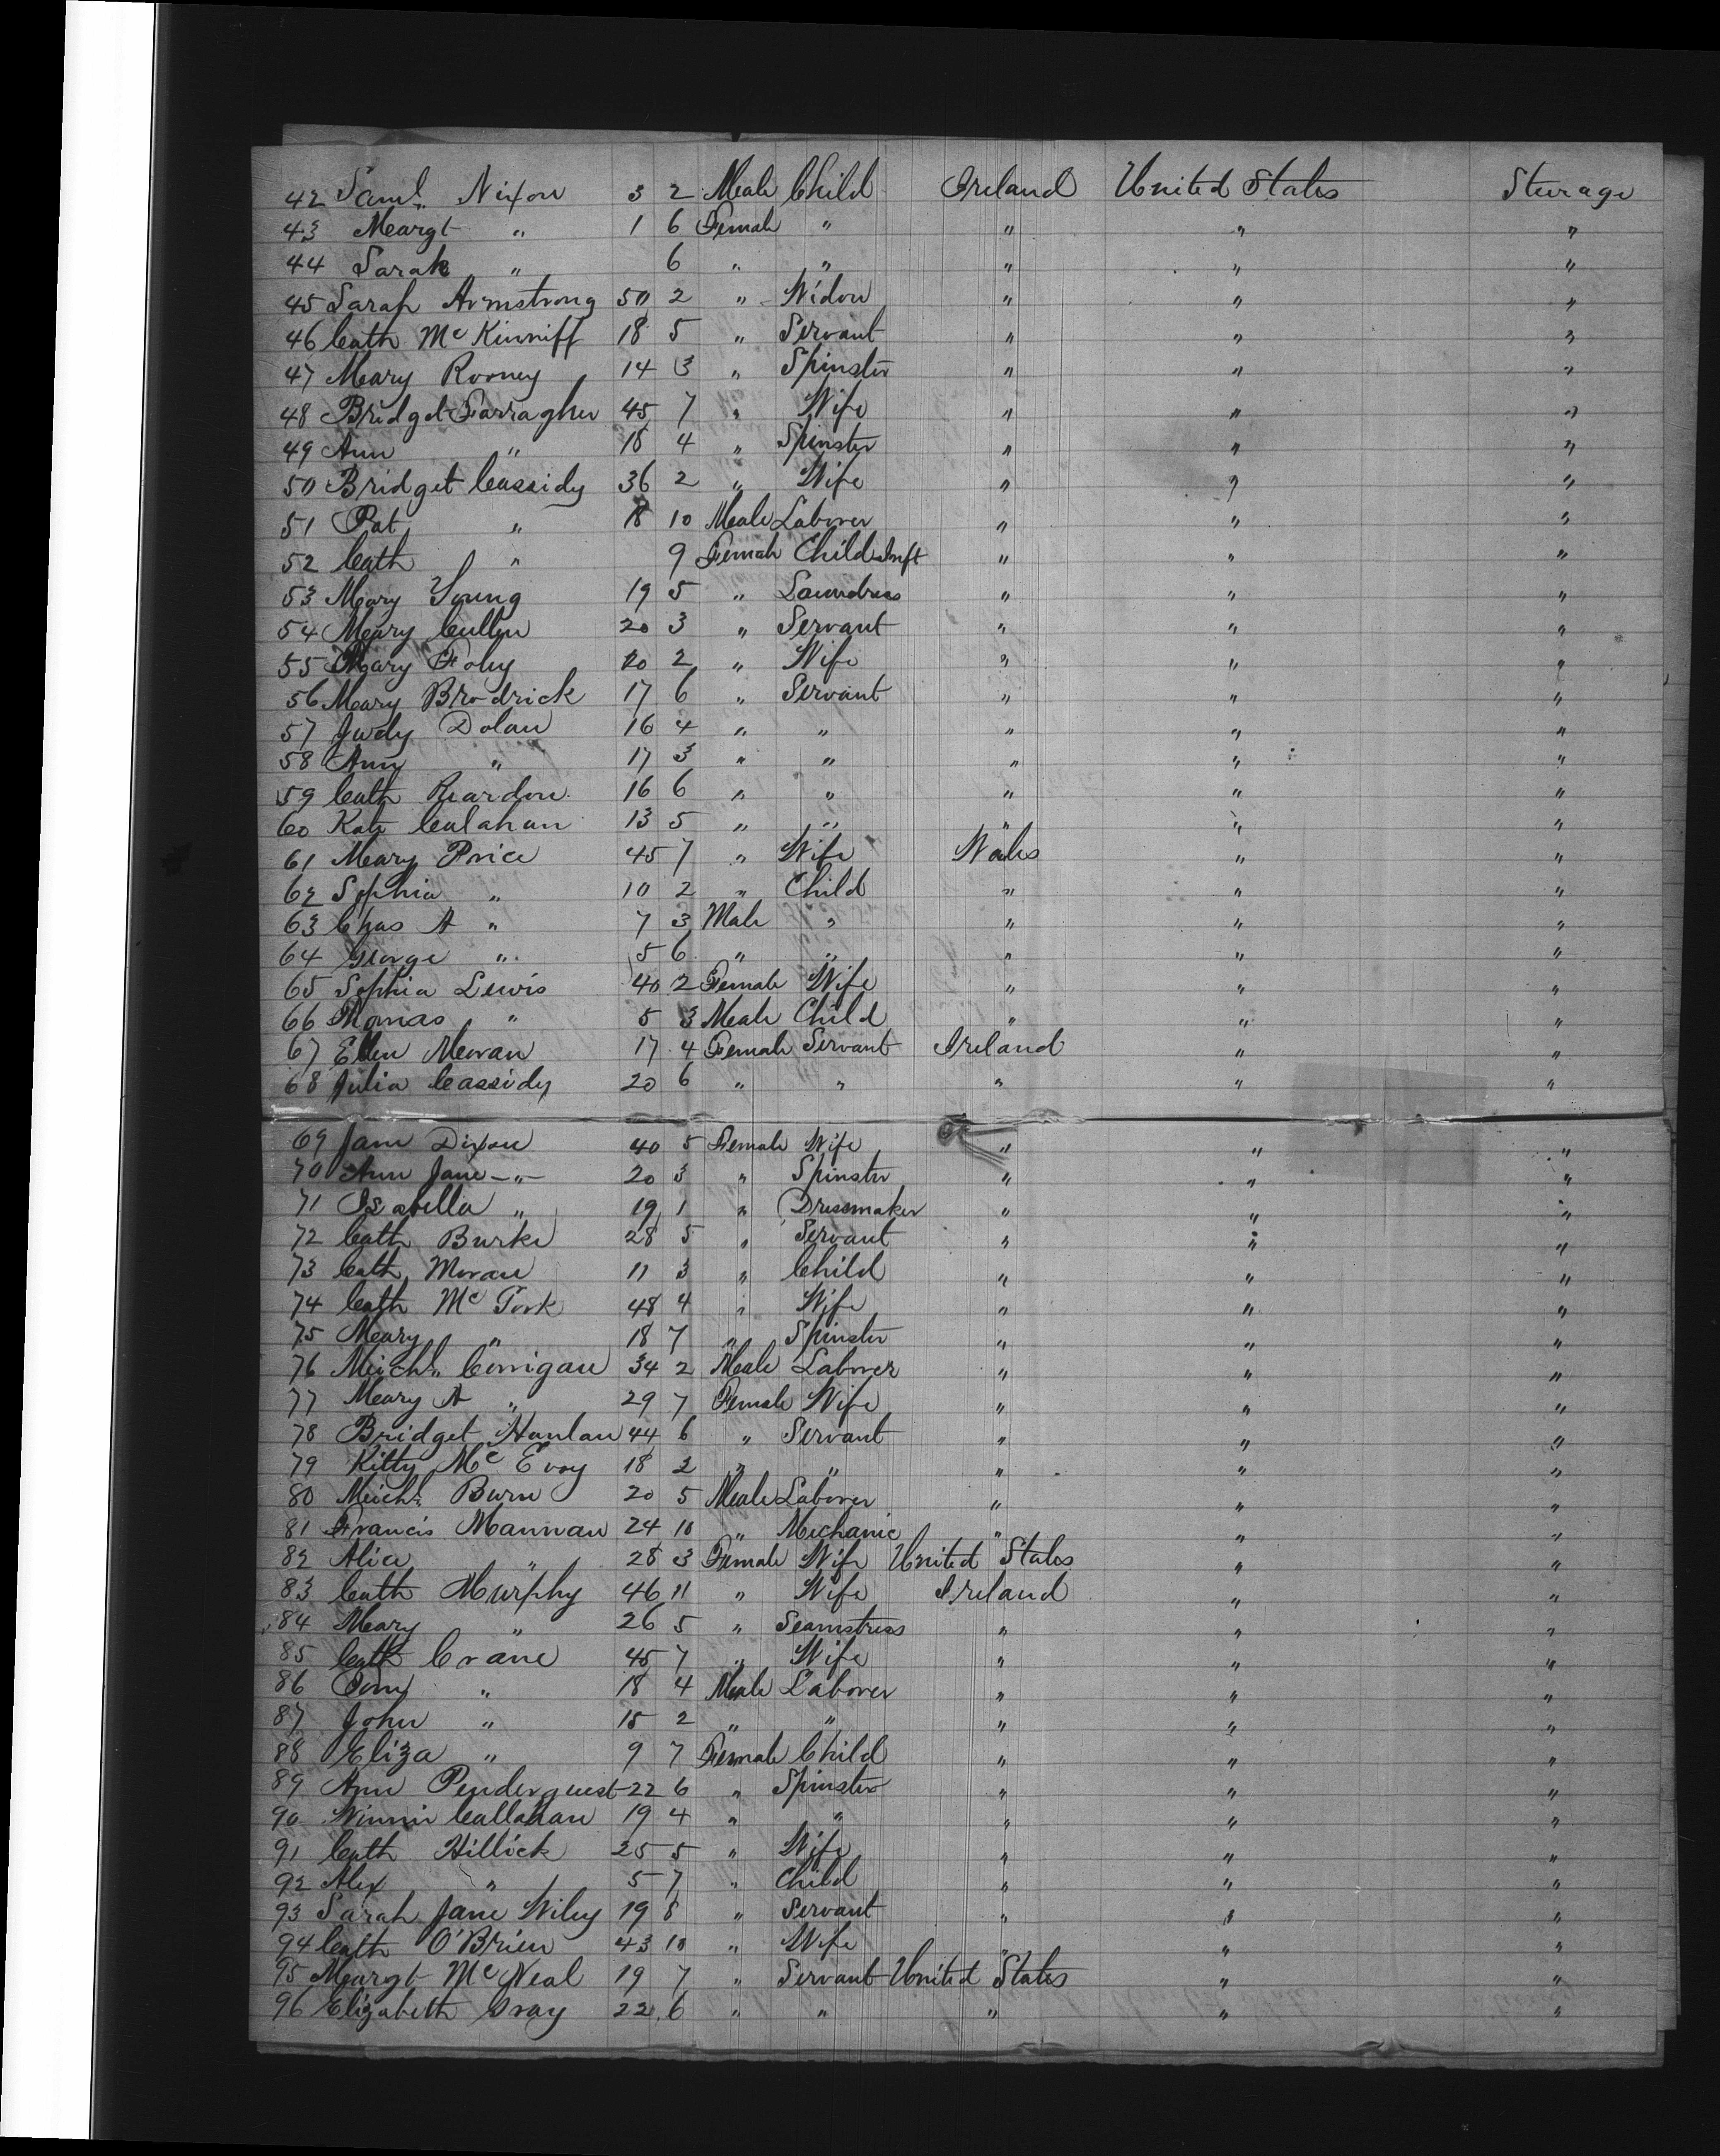 42 Saml. Nixon 3 2 Male Child Ireland United States Sterage
43 Margt " 1 6 Female " " " "
44 Sarah " 6 " " " " "
45 Sarah Armstrong 50 2 " Widow " " "
46 Cath Mc Kinniff 18 5 " Servant " " "
47 Mary Rooney 14 3 " Spinster " " "
48 Bridget Farragher 45 7 " Wife " " "
49 Ann " 18 4 " Spinster " " "
50 Bridget Cassidy 36 2 " Wife " " "
51 Pat " 18 10 Male Laborer " " "
52 Cath " 9 Female Child Inft " " "
53 Mary Young 19 5 " Laundress " " "
54 Mary Cullen 20 3 " Servant " " "
55 Mary Foley 20 2 " Wife " " "
56 Mary Brodrick 17 6 " Servant " " "
57 Judy Dolan 16 4 " " " " "
58 Ann " 17 3 " " " " "
59 Cath Reardon 16 6 " " " " "
60 Kate Calahan 13 5 " " " " "
61 Mary Price 45 7 " Wife Wales " "
62 Sophia " 10 2 " Child " " "
63 Chas A " 7 3 Male " " " "
64 George " 5 6 " " " " "
65 Sophia Lewis 40 2 Female Wife " " "
66 Thomas " 5 3 Male Child " " "
67 Ellen Moran 17 4 Female Servant Ireland " "
68 Julia Cassidy 20 6 " " " " "
69 Jane Dixon 40 5 Female Wife " " "
70 Ann Jane -"- 20 3 " Spinster " " "
71 Isabella " 19 1 " Dressmaker " " "
72 Cath Burke 28 5 " Servant " " "
73 Cath Moran 11 3 " Child " " "
74 Cath Mc Turk 48 4 " Wife " " "
75 Mary " 18 7 " Spinster " " "
76 Michl. Corrigan 34 2 Male Laborer " " "
77 Mary A " 29 7 Female Wife " " "
78 Bridget Hanlan 44 6 " Servant " " "
79 Kitty Mc Evoy 18 2 " " " " "
80 Michl. Burn 20 5 Male Laborer " " "
81 Francis Mannan 24 10 " Mechanic " " "
82 Alice " 28 3 Female Wife United States " "
83 Cath Murphy 46 11 " Wife Ireland " "
84 Mary " 26 5 " Seamstress " " "
85 Cath Crane 45 7 " Wife " " "
86 Tom " 18 4 Male Laborer " " "
87 John " 15 2 " " " " "
88 Eliza " 9 7 Female Child " " "
89 Ann Penderguest 22 6 " Spinster " " "
90 Winnie Callahan 19 4 " " " " "
91 Cath Hillick 25 5 " Wife " " "
92 Alex " 5 7 " Child " " "
93 Sarah Jane Wiley 19 8 " Servant " " "
94 Cath O'Brien 43 10 " Wife " " "
95 Margt Mc Neal 19 7 " Servant United States " "
96 Elizabeth Gray 22 6 " " " " "